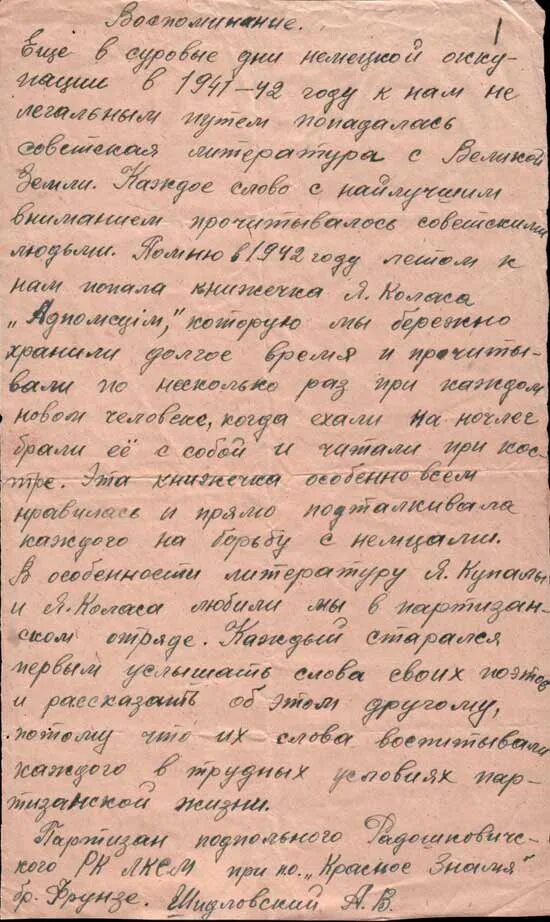 Воспоминание.
1
Еще в суровые дни немецкой окку-
пации в 1941-42 году к нам не
легальным путем попадалась
советская литература с Великой
Земли. Каждое слово с найлучшим
вниманием прочитывалось советскими
людьми. Помню в 1942 году летом к
нам попала книжечка Я. Коласа
„Адпомсцім," которую мы бережно
хранили долгое время и прочиты-
вали по несколько раз при каждом
новом человеке, когда ехали на ночлег
брали её с собой и читали при кос-
тре. Эта книжечка особенно всем
нравилась и прямо подталкивала
каждого на борьбу с немцами.
В особенности литературу Я. Купалы
и Я. Коласа любили мы в партизан-
ском отряде. Каждый старался
первым услышать слова своих поэтов
и рассказать об этом другому,
потому что их слова воспитывали
каждого в трудных условиях пар-
тизанской жизни.
Партизан подпольного Радошковичс-
кого РК ЛКСМ при по. „Красное Знамя"
бр. Фрунзе. Шидловский А.В.